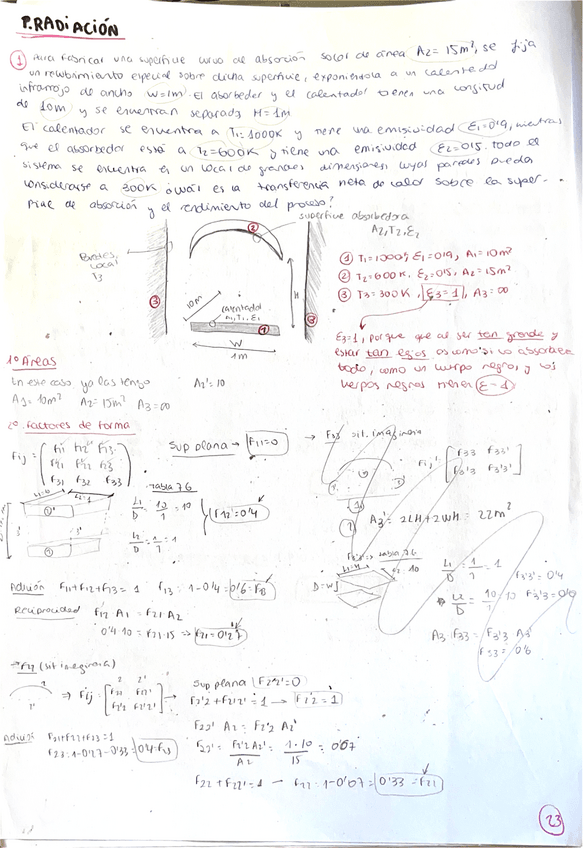 P.RADIACIÓN
① Para fabricar una superficie curva de absorción solar de área A2 = 15m², se fija
un recubrimiento especial sobre dicha superficie, exponiéndola a un calentador
infrarrojo de ancho W=1m. El absorbedor y el calentador tienen una longitud
de 10m y se encuentran separados H=1m
El calentador se encuentra a T1=1000K y tiene una emisividad E1=0'9, mientras
que el absorbedor está a T2=600K y tiene una emisividad E2=0'5. todo el
sistema se encuentra en un local de grandes dimensiones cuyas paredes pueda
considerarse a 300K ¿Cuál es la transferencia neta de calor sobre la super-
ficie de absorción y el rendimiento del proceso?
superficie absorbedora
A2,T2,E2
Paredes,
Local
T3
②
③
③
10m
calentador
A1,T1,E1
①
H
W
1m
① T1=1000K, E1=0'9, A1=10m²
② T2=600K, E2=0'5, A2=15m²
③ T3=300K, E3=1, A3=∞
E3=1, porque que al ser tan grande y
estar tan lejos es como si lo absorbiera
todo, como un cuerpo negro, y los
cuerpos negros tienen E=1
1º Áreas
En este caso ya las tengo
A1=10m² A2=15m² A3=∞
A2'=10
2º Factores de forma
Fij = F11 F12 F13
F21 F22 F23
F31 F32 F33
Sup plana → F11=0
tabla 7.6
L1/D = 10/1 = 10
L2/D = 1/1 = 1
F12'=0'4
→ F33 sit. imaginaria
Fij' [F33 F33'
F3'3 F3'3']
A3'=2LH+2WH=22m²
tabla 7.6
D=W
L1/D = 1/1 = 1
L2/D = 10/1 = 10
F3'3'=0'4
F3'3=0'6
A3 F33' = F3'3 A3'
F33=0'6
Adición F11+F12+F13=1 F13=1-0'4=0'6=F13
Reciprocidad F12 A1=F21·A2
0'4·10=F21·15 ⇒ F21=0'27
→ F22 (sit imaginaria)
2
2'
⇒ Fij = [F22 F22'
F2'2 F2'2'] →
Sup plana F2'2'=0
F2'2+F2'2'=1 → F2'2=1
F22' A2=F2'2 A2'
F22'=F2'2 A2'/A2 = 1·10/15 = 0'67
F22+F22'=1 → F22=1-0'67=0'33=F22
Adición F21+F22+F23=1
F23=1-0'27-0'33=0'4=F23
23